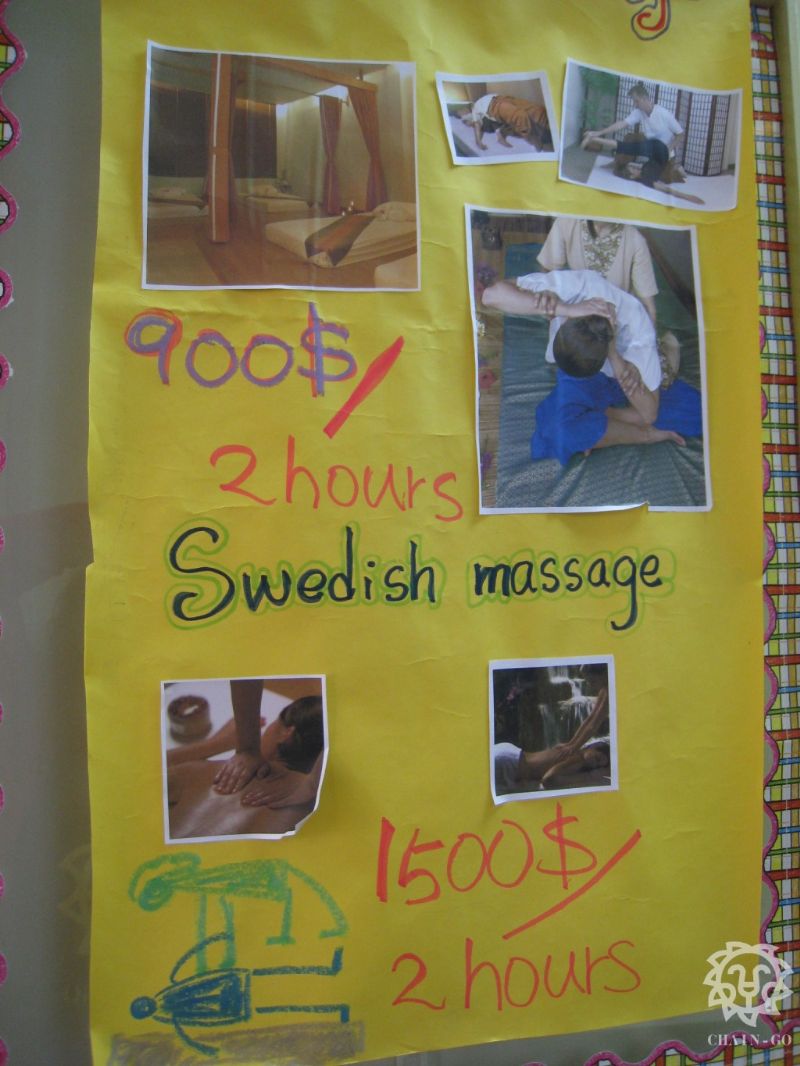 900$/
2 hours
Swedish massage
1500$/
2 hours
CHAIN-GO